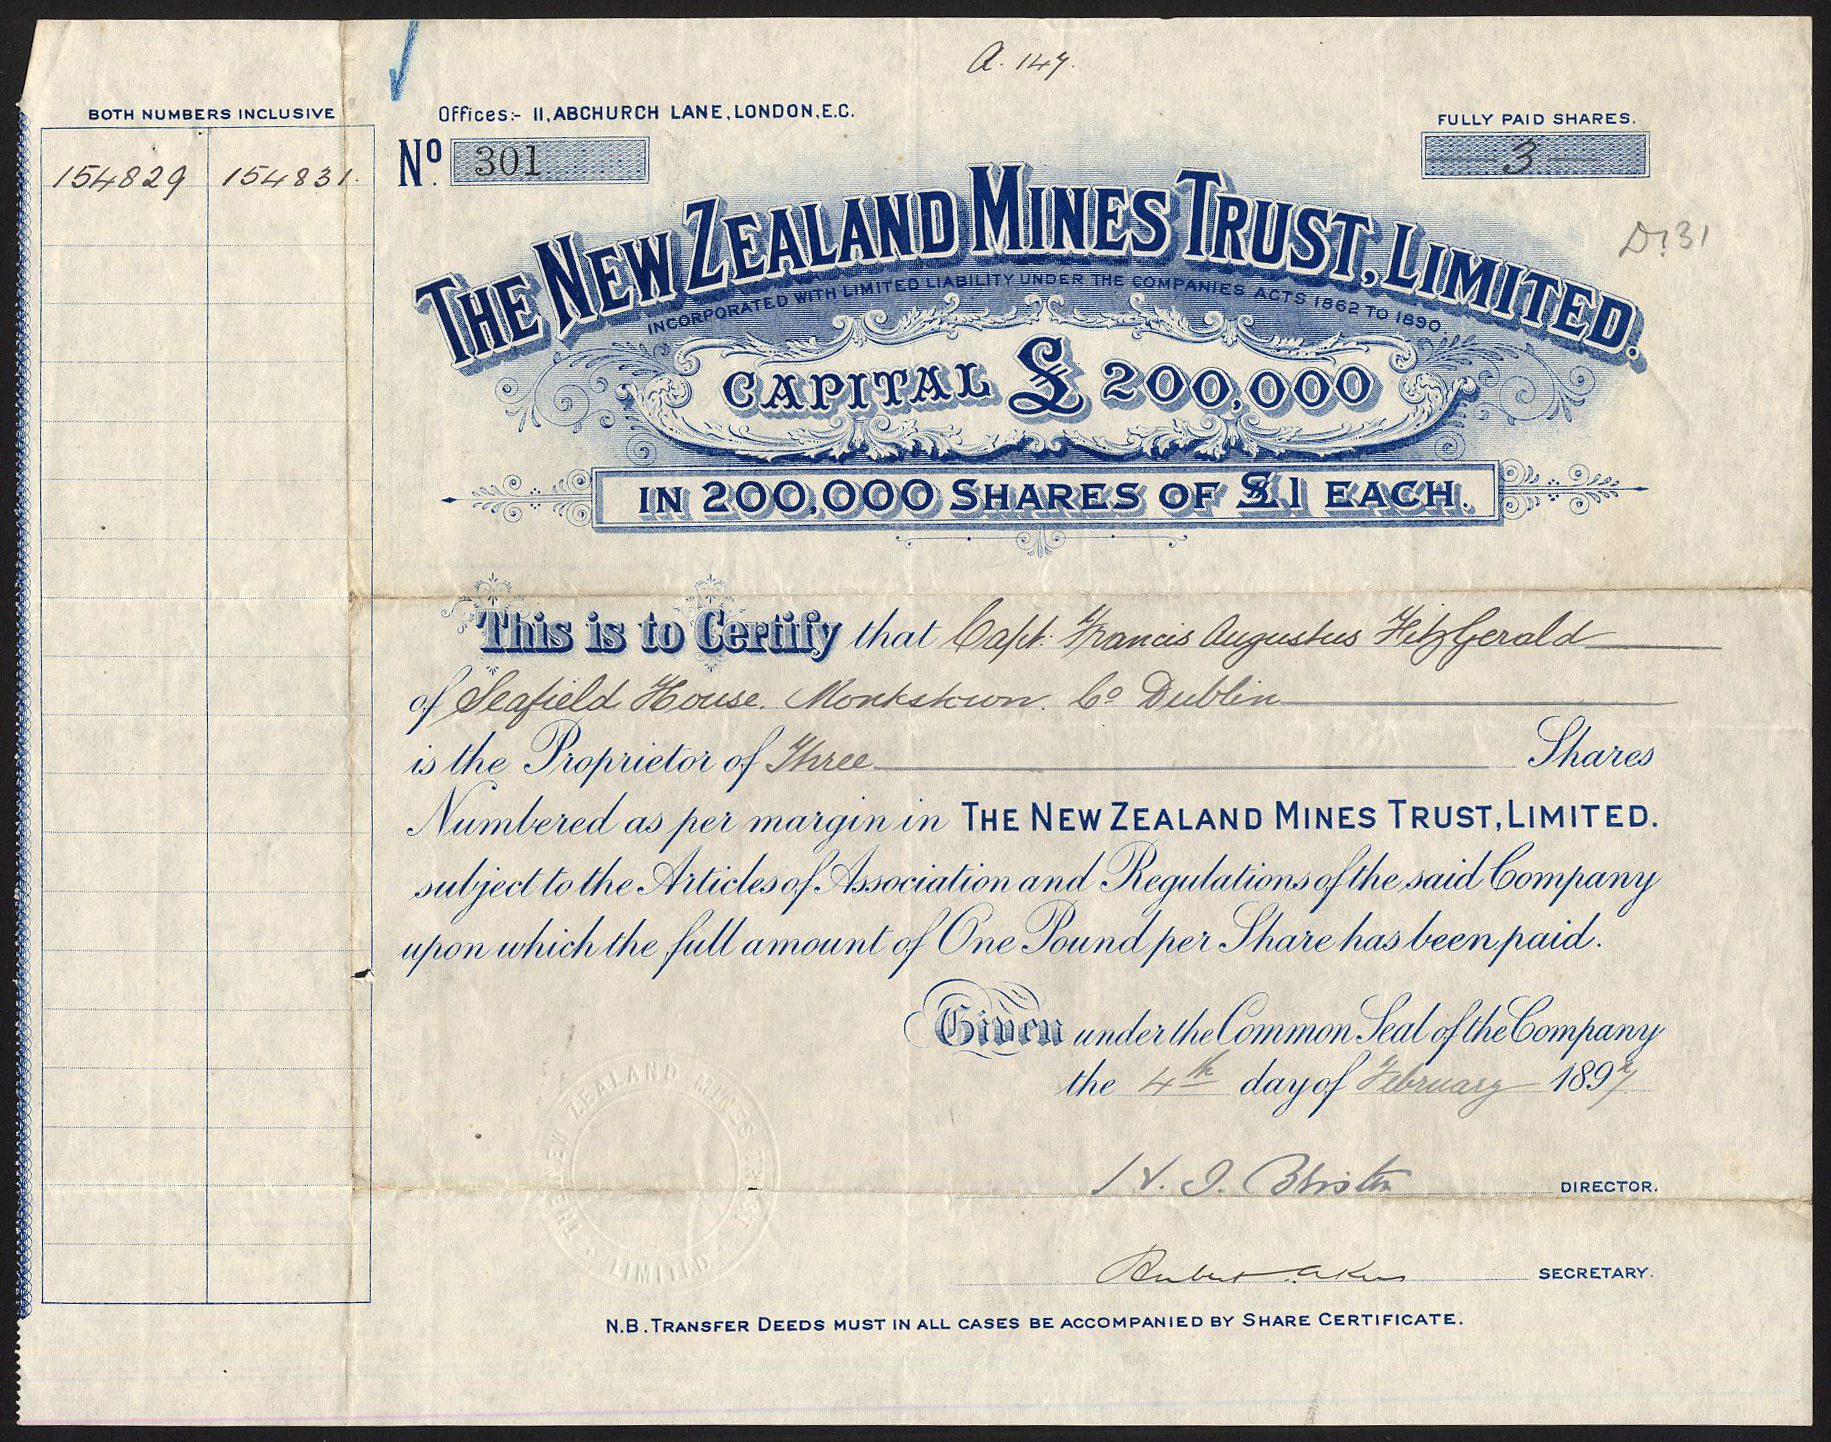 A. 147.
BOTH NUMBERS INCLUSIVE
154829 154831.
Offices:- 11, ABCHURCH LANE, LONDON, E.C.
No. 301
FULLY PAID SHARES.
3
D. 31
THE NEW ZEALAND MINES TRUST, LIMITED.
INCORPORATED WITH LIMITED LIABILITY UNDER THE COMPANIES ACTS 1862 TO 1890.
CAPITAL £ 200,000
IN 200,000 SHARES OF £1 EACH.
This is to Certify that Capt. Francis Augustus FitzGerald
of Seafield House. Monkstown. Co Dublin
is the Proprietor of Three Shares
Numbered as per margin in THE NEW ZEALAND MINES TRUST, LIMITED.
subject to the Articles of Association and Regulations of the said Company
upon which the full amount of One Pound per Share has been paid.
Given under the Common Seal of the Company
the 4th day of February 1897
H. J.
DIRECTOR.
SECRETARY.
THE NEW ZEALAND MINES TRUST LIMITED
N.B. TRANSFER DEEDS MUST IN ALL CASES BE ACCOMPANIED BY SHARE CERTIFICATE.